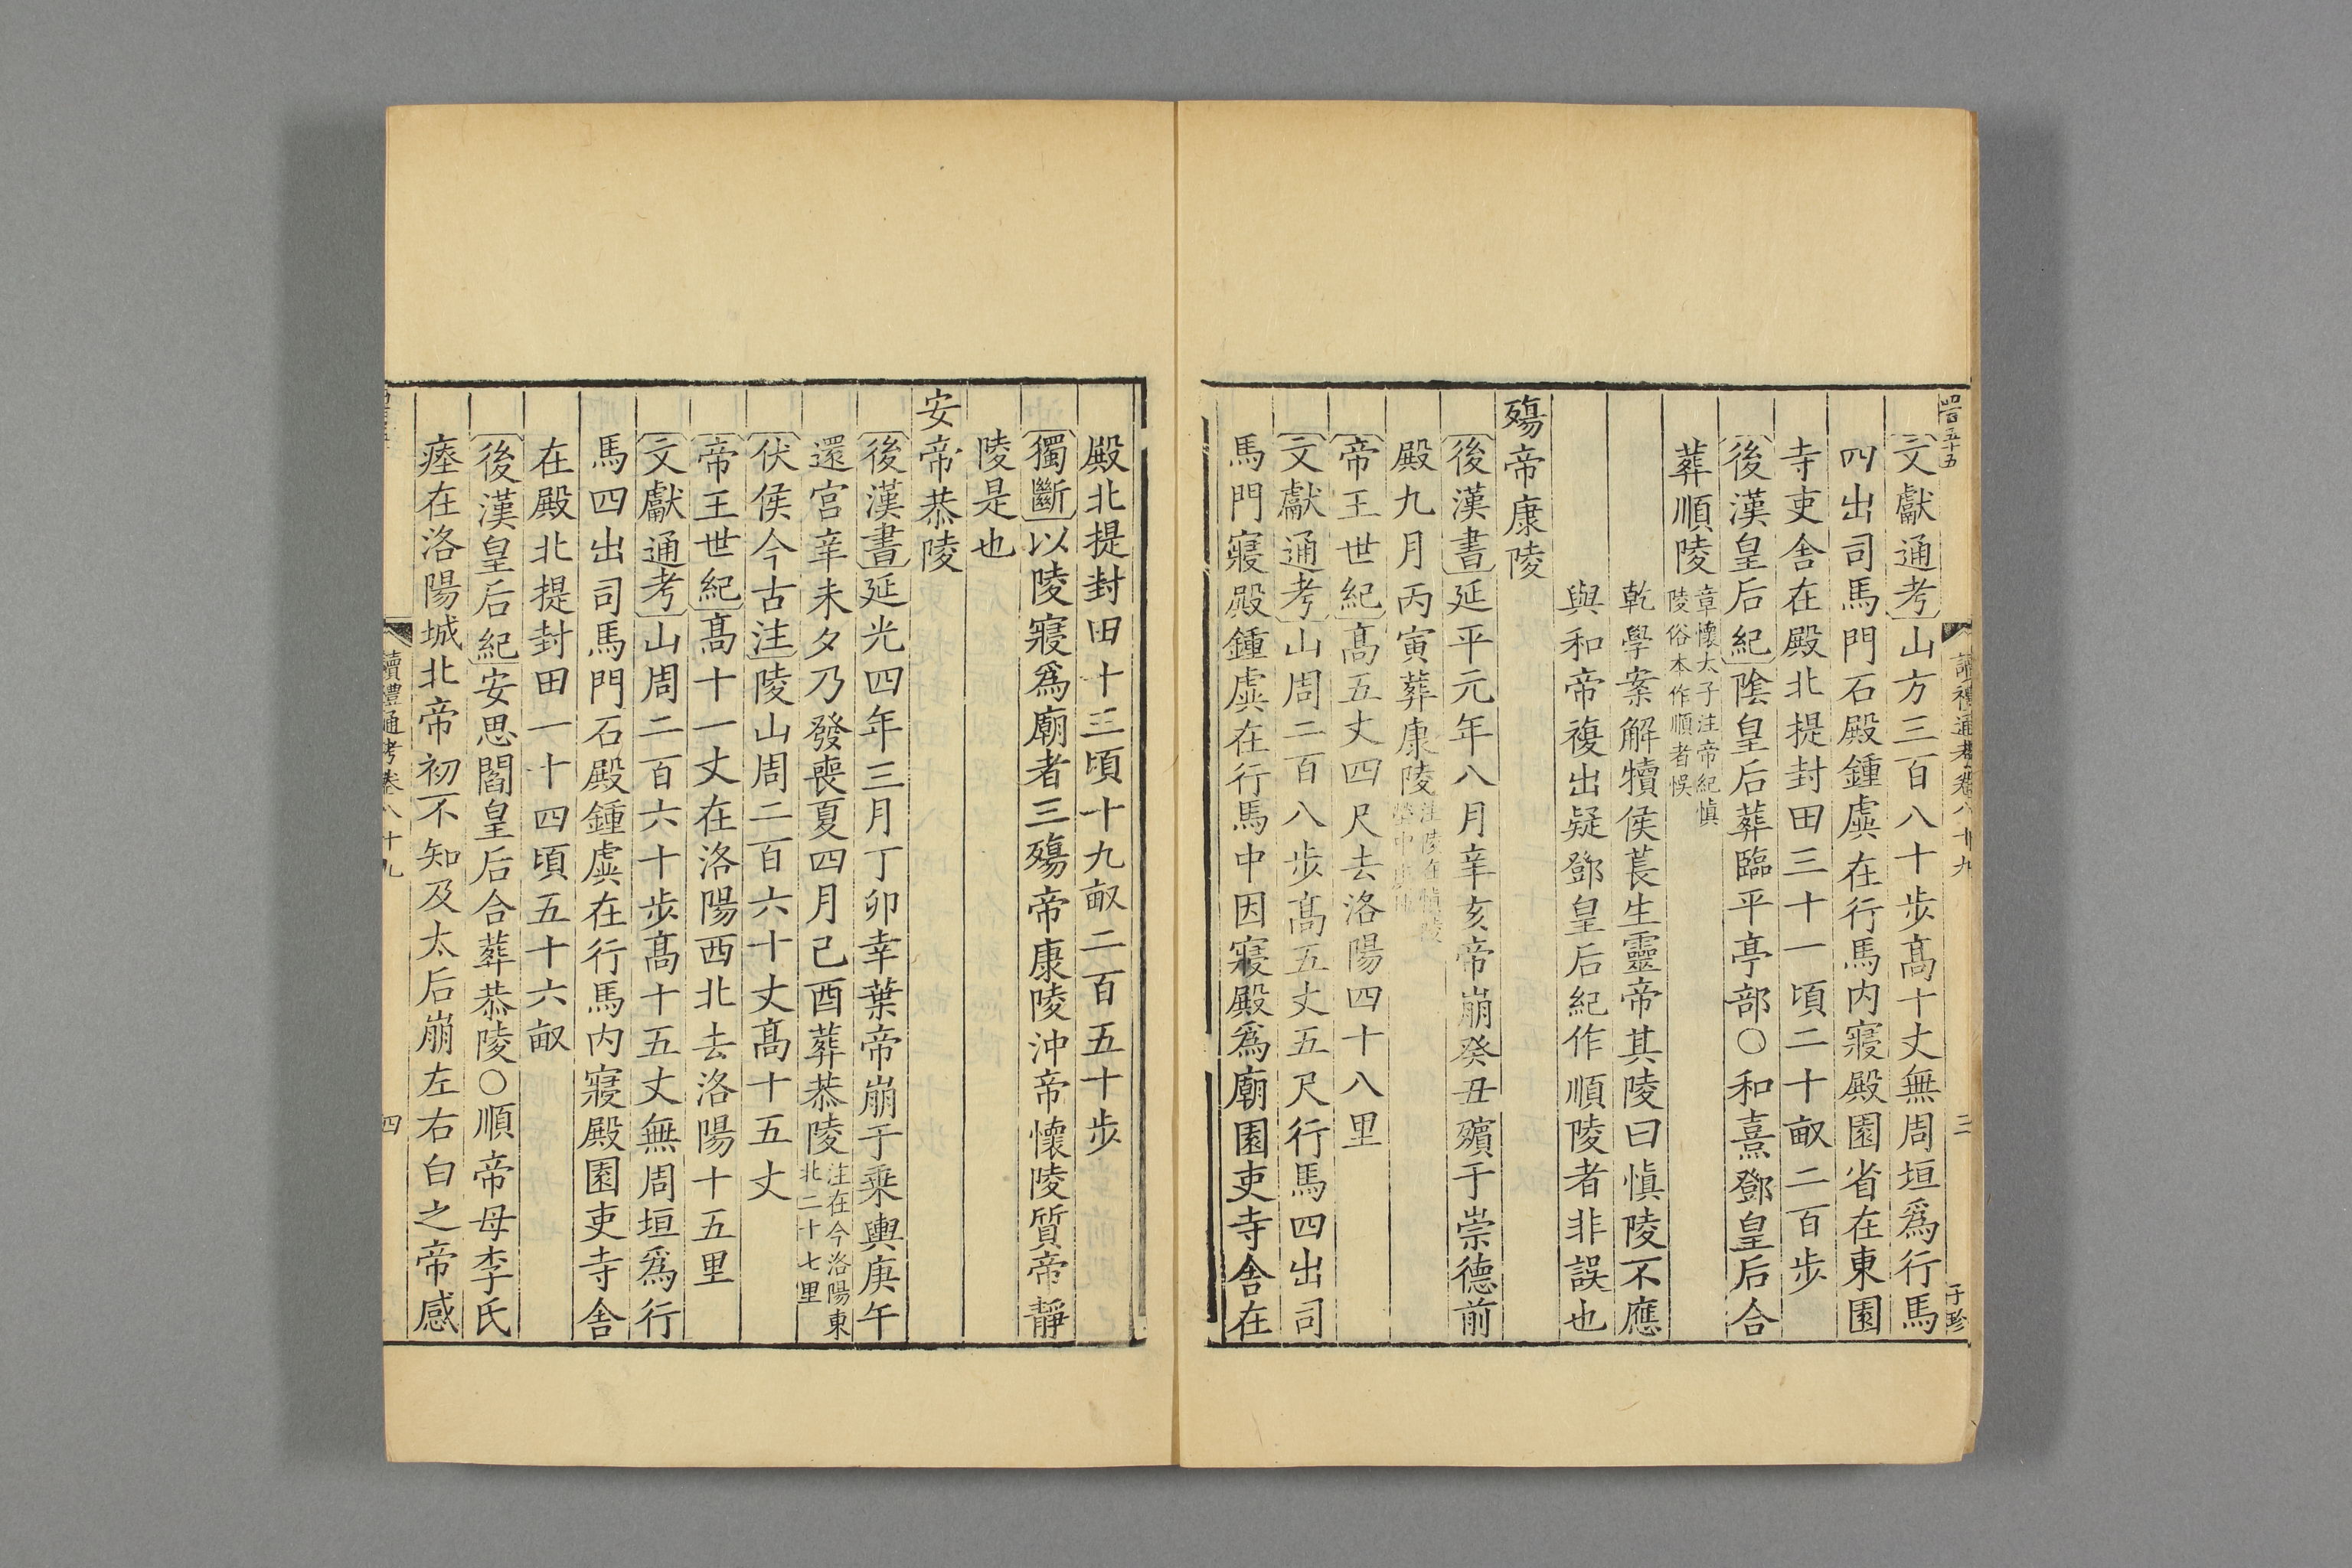 文獻通考山方三百八十步髙十丈無周垣爲行馬
四出司馬門石殿鍾虡在行馬内寢殿園省在東園
寺吏舍在殿北提封田三十一頃二十畝二百步
後漢皇后紀隂皇后葬臨平亭部○和熹鄧皇后合
葬順陵章懷太子注帝紀愼陵俗本作順者悞
乾學案解犢侯萇生靈帝其陵曰愼陵不應
與和帝複出疑鄧皇后紀作順陵者非誤也
殤帝康陵
後漢書延平元年八月辛亥帝崩癸丑殯于崇德前
殿九月丙寅葬康陵注陵在愼陵
帝王世紀髙五丈四尺去洛陽四十八里
文獻通考山周二百八步髙五丈五尺行馬四出司
馬門寢殿鍾虡在行馬中因寢殿爲廟園吏寺舍在
讀禮通考卷八十九
三
子珍
殿北提封田十三頃十九畝二百五十步
獨斷以陵寢爲廟者三殤帝康陵沖帝懷陵質帝靜
陵是也
安帝恭陵
後漢書延光四年三月丁卯幸葉帝崩于乘輿庚午
還宫辛未夕乃發喪夏四月己酉葬恭陵注在今洛陽東北二十七里
伏侯今古注陵山周二百六十丈髙十五丈
帝王世紀髙十一丈在洛陽西北去洛陽十五里
文獻通考山周二百六十步髙十五丈無周垣爲行
馬四出司馬門石殿鍾虡在行馬内寢殿園吏寺舍
在殿北提封田一十四頃五十六畝
後漢皇后紀安思閻皇后合葬恭陵○順帝母李氏
瘞在洛陽城北帝初不知及太后崩左右白之帝感
讀禮通考卷八十九
四